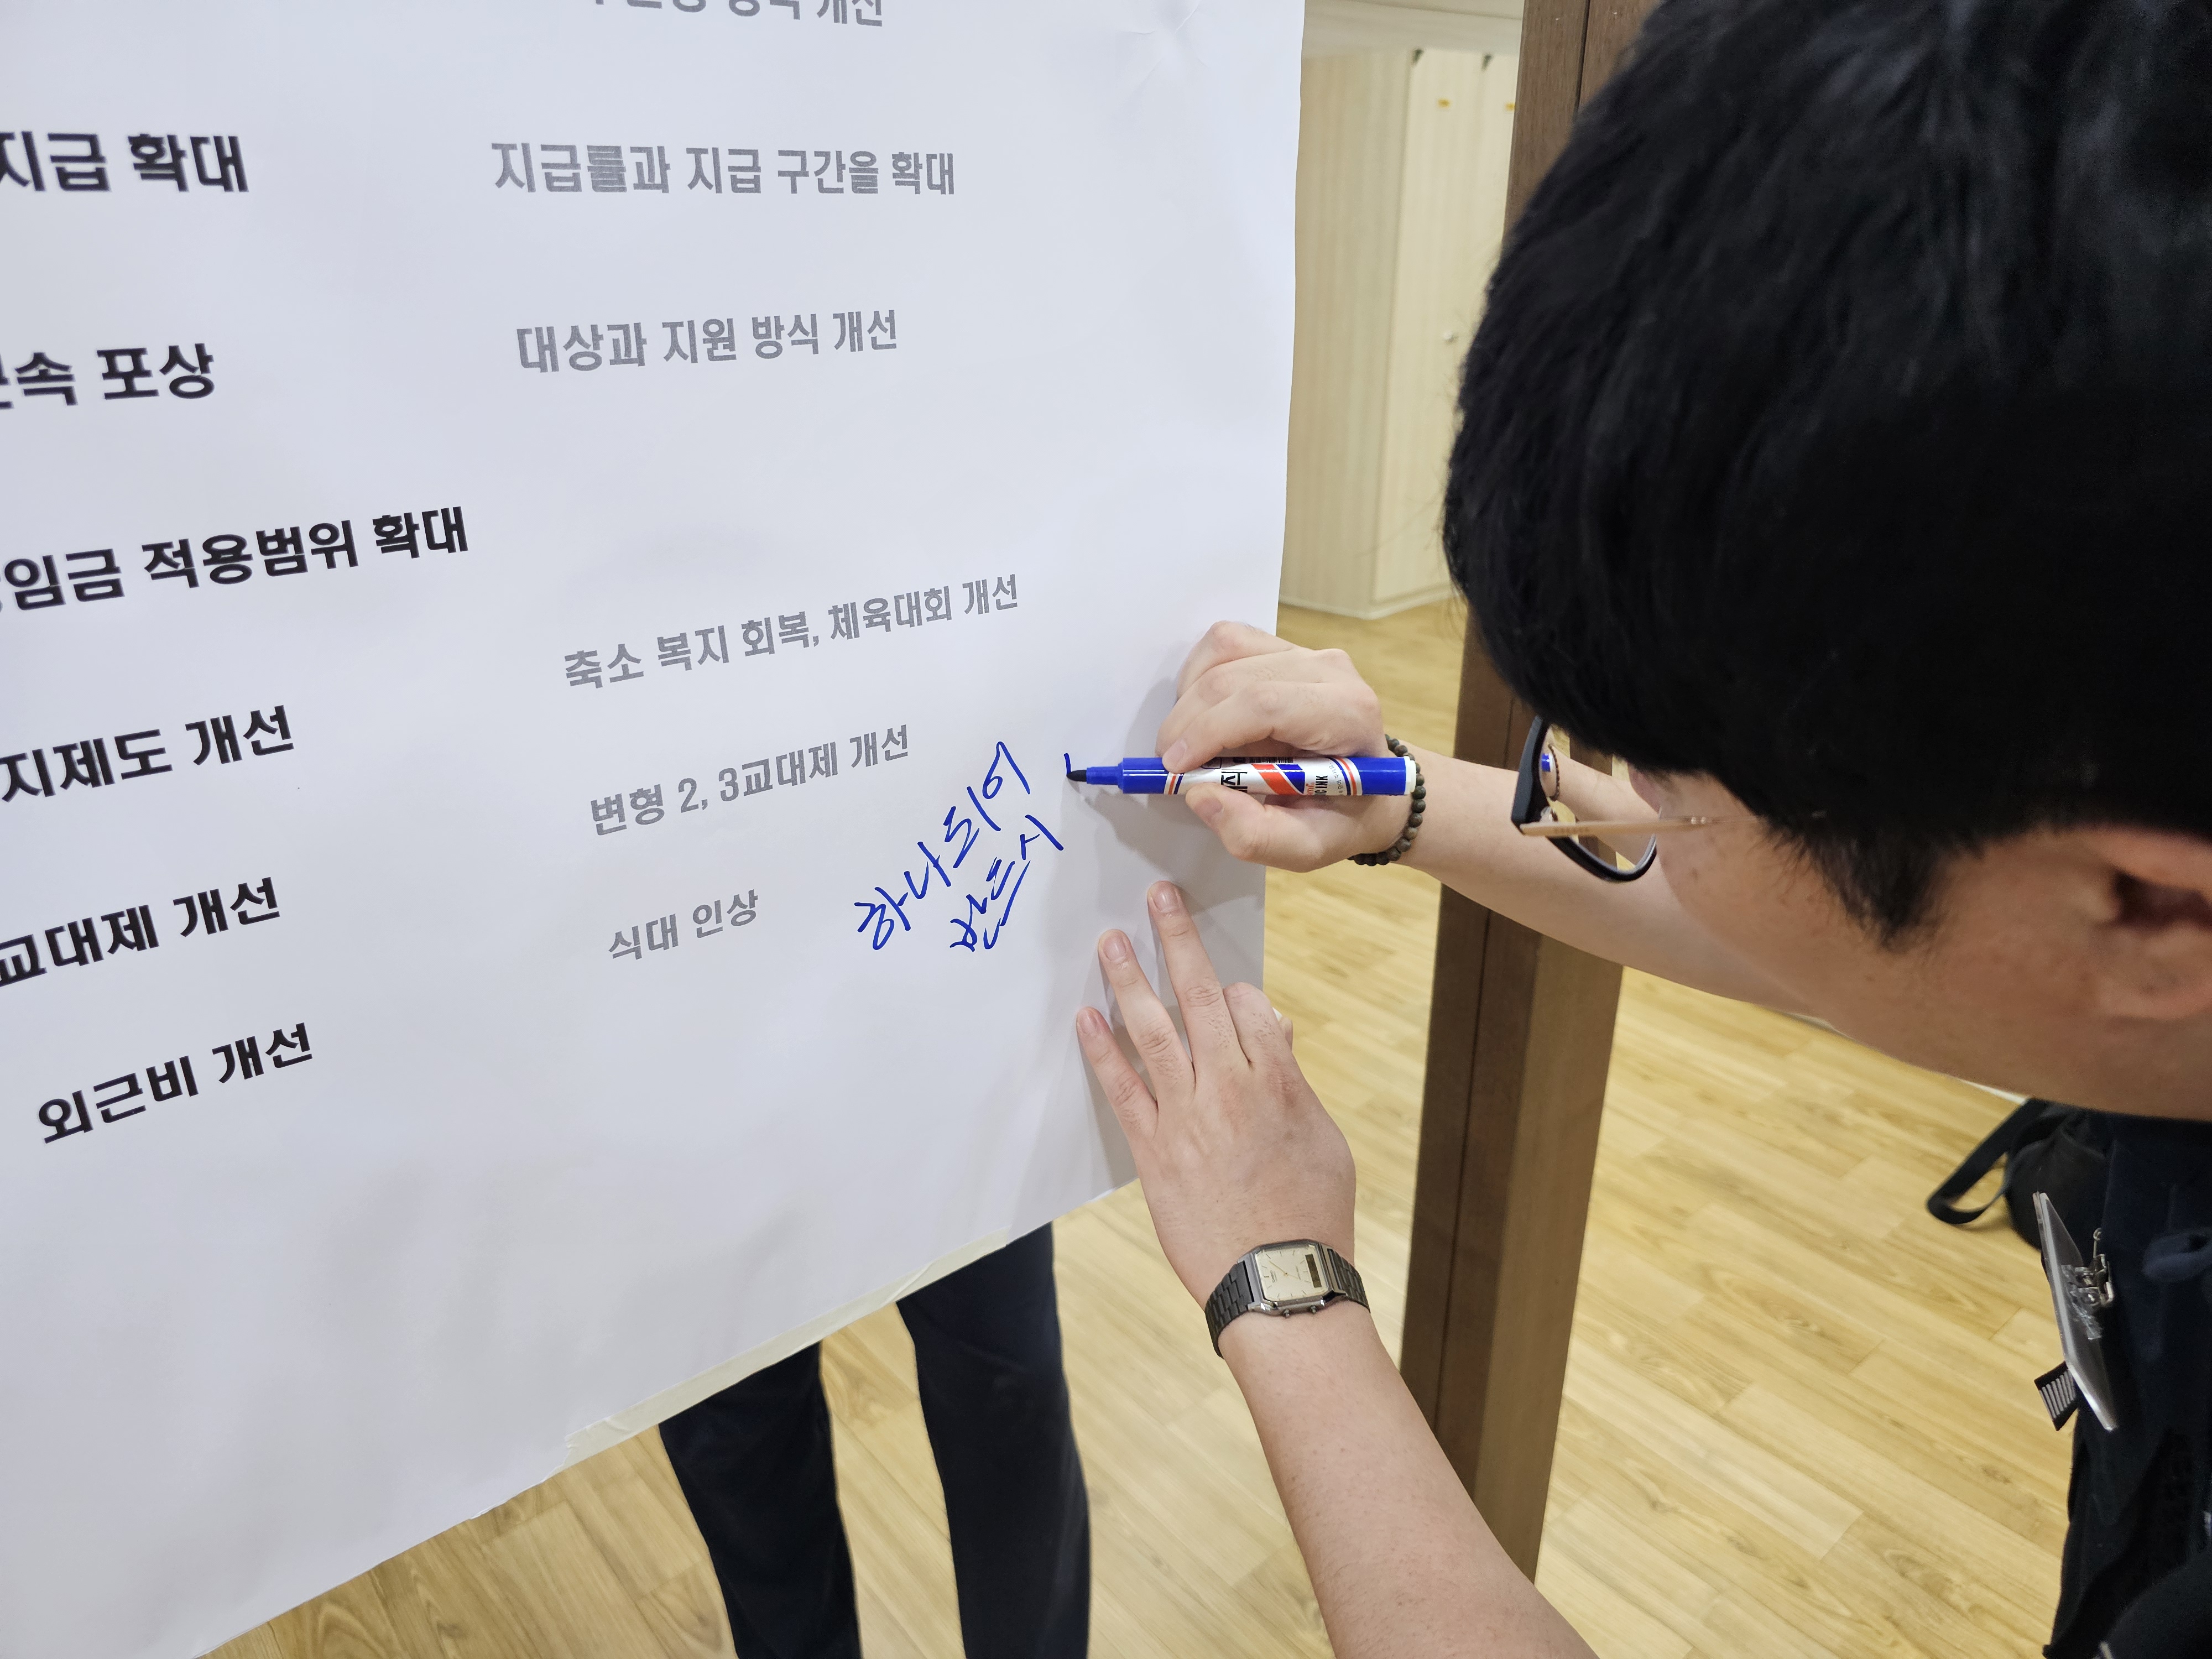 개선
지급 확대
지급률과 지급 구간을 확대
속 포상
대상과 지원 방식 개선
임금 적용범위 확대
축소 복지 회복, 체육대회 개선
지제도 개선
변형 2, 3교대제 개선
교대제 개선
식대 인상
외근비 개선
하나되어
반드시
INK